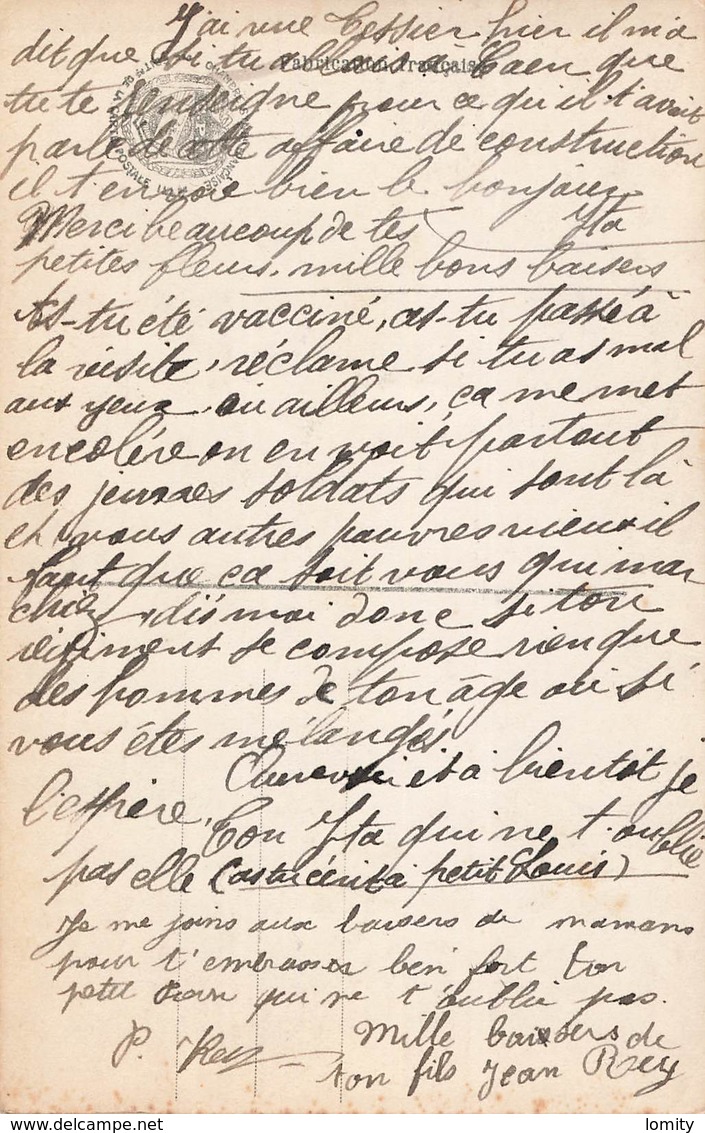 J'ai vue Tessier hier il m'a
dit que si tu allais à Caen que
Fabrication française
tu te renseigne pour ce qu'il t'avait
parlé de cette affaire de construction
il t'envoie bien le bonjour
Merci beaucoup de tes Yta
petites fleurs, mille bons baisers
As-tu été vacciné, as-tu passé à
la visite, réclame si tu as mal
aux yeux ou ailleurs, ça me met
en colère on en voit partout
des jeunes soldats qui sont là
et vous autres pauvres vieux il
faut que ça soit vous qui mar
chiez, dis moi donc si ton
régiment se compose rien que
des hommes de ton âge ou si
vous êtes mélangés
Au revoir et à bientôt je
l'espère,
Ton Yta qui ne t'oublie
pas elle (as tu écrit à petit Louis)
Je me joins aux baisers de mamans
pour t'embrasser bien fort ton
petit Jean qui ne t'oublie pas.
P. Rey
Mille baisers de
ton fils Jean Rey
lomity